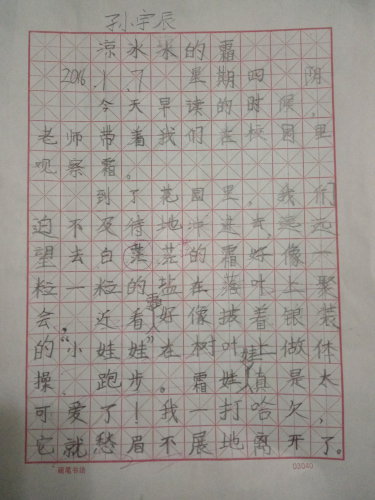 孙宇辰
凉冰冰的霜
2016.1.7 星期四 阴
今天早读的时候,
老师带着我们在校园里
观察霜。
到了花园里,我们
迫不及待地冲进去,远远
望去白茫茫的霜好像一
粒一粒的盐在落叶上聚
会,近看好像披着银装
的“小娃娃”在树叶上做体
操、跑步。霜娃娃真是太
可爱了!我一打哈欠,
它就愁眉不展地离开了。
硬笔书法
03040